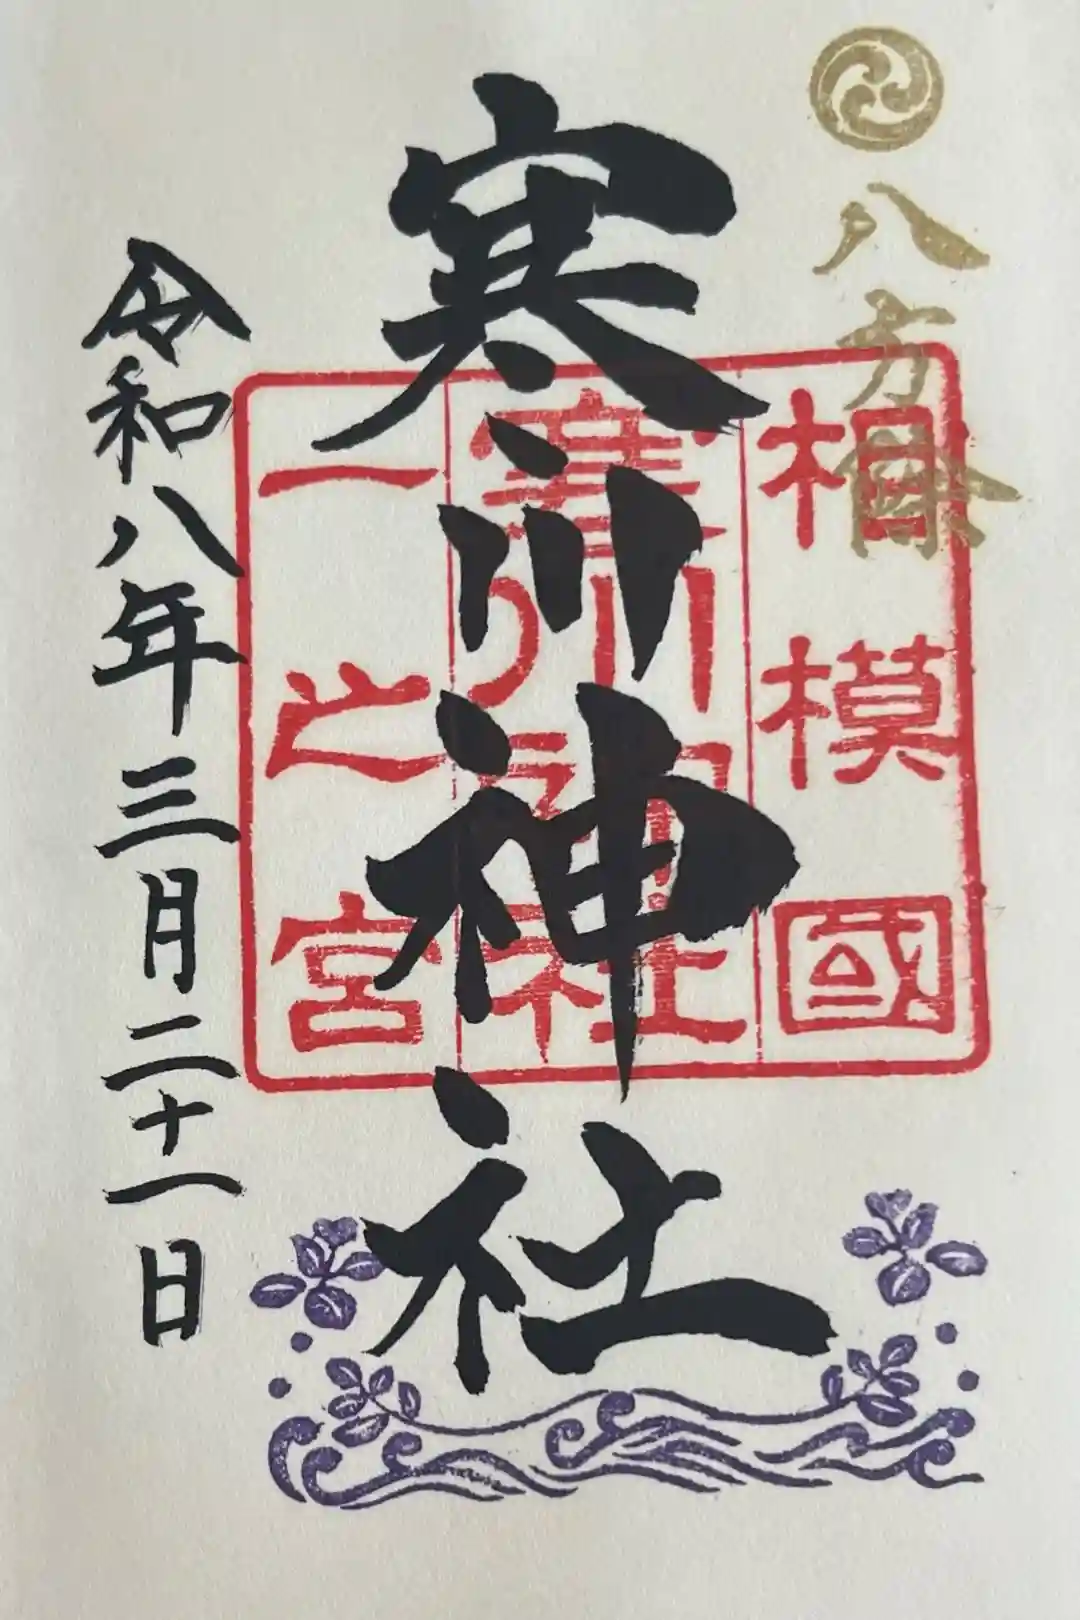 八方除
相模國
寒川神社
寒川神社
一之宮
令和八年三月二十一日